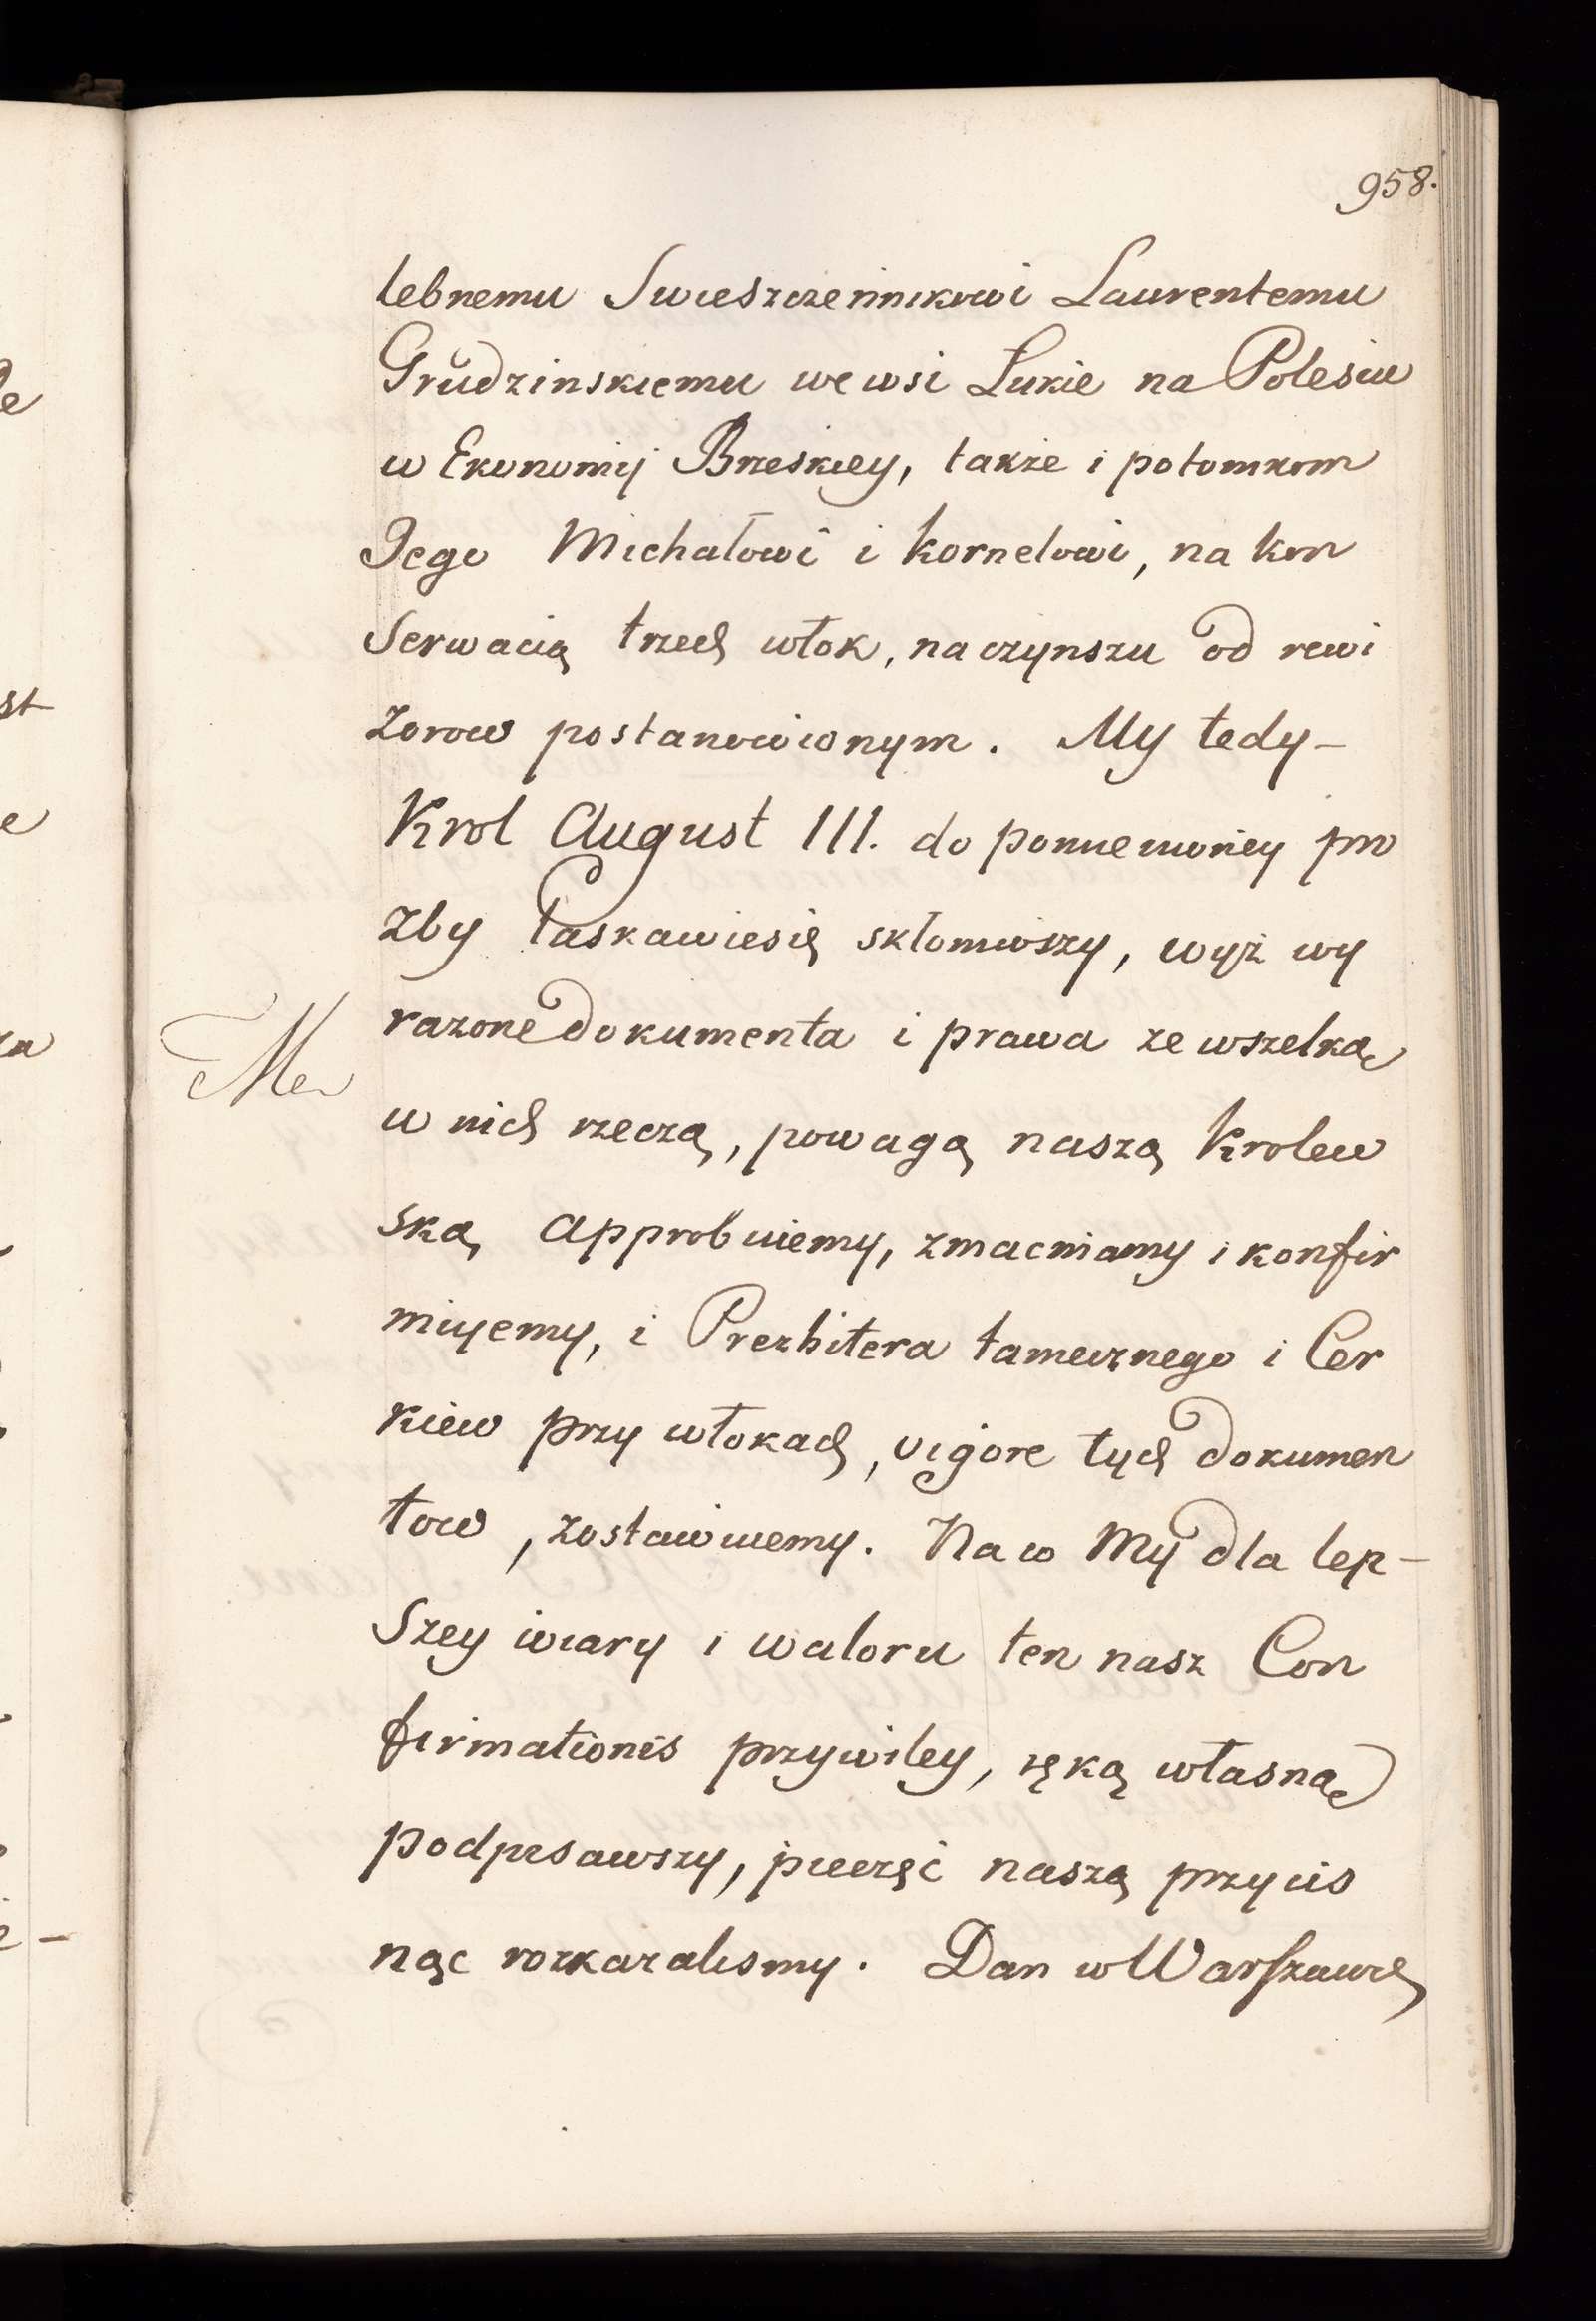 958.
lebnemu Swieszczennikowi Laurentemu
Grudzinskiemu we wsi Łukie na Polesiu
w Ekonomij Brzeskiey, także i potomkom
Jego Michałowi i Kornelowi, na kon
Serwacią trzech włok, na czynszu od rewi
zorow postanowionym. My tedy –
Krol August III. do pomienioney pro
zby łaskawie się skłoniwszy, wyż wy
rażone dokumenta i prawa ze wszelką
w nich rzeczą, powagą naszą Krolew
ską approbuiemy, zmacniamy i konfir
miyemy, i Prezbitera tamecznego i Cer
kiew przy włokach, vigore tych dokumen
tow, zostawiuemy. Na co My dla lep–
Szey wiary i waloru ten nasz Con
firmationis przywiley, ręką własną
podpisawszy, pieczęć naszą przycis
nąc rozkazalismy. Dan w Warszawie